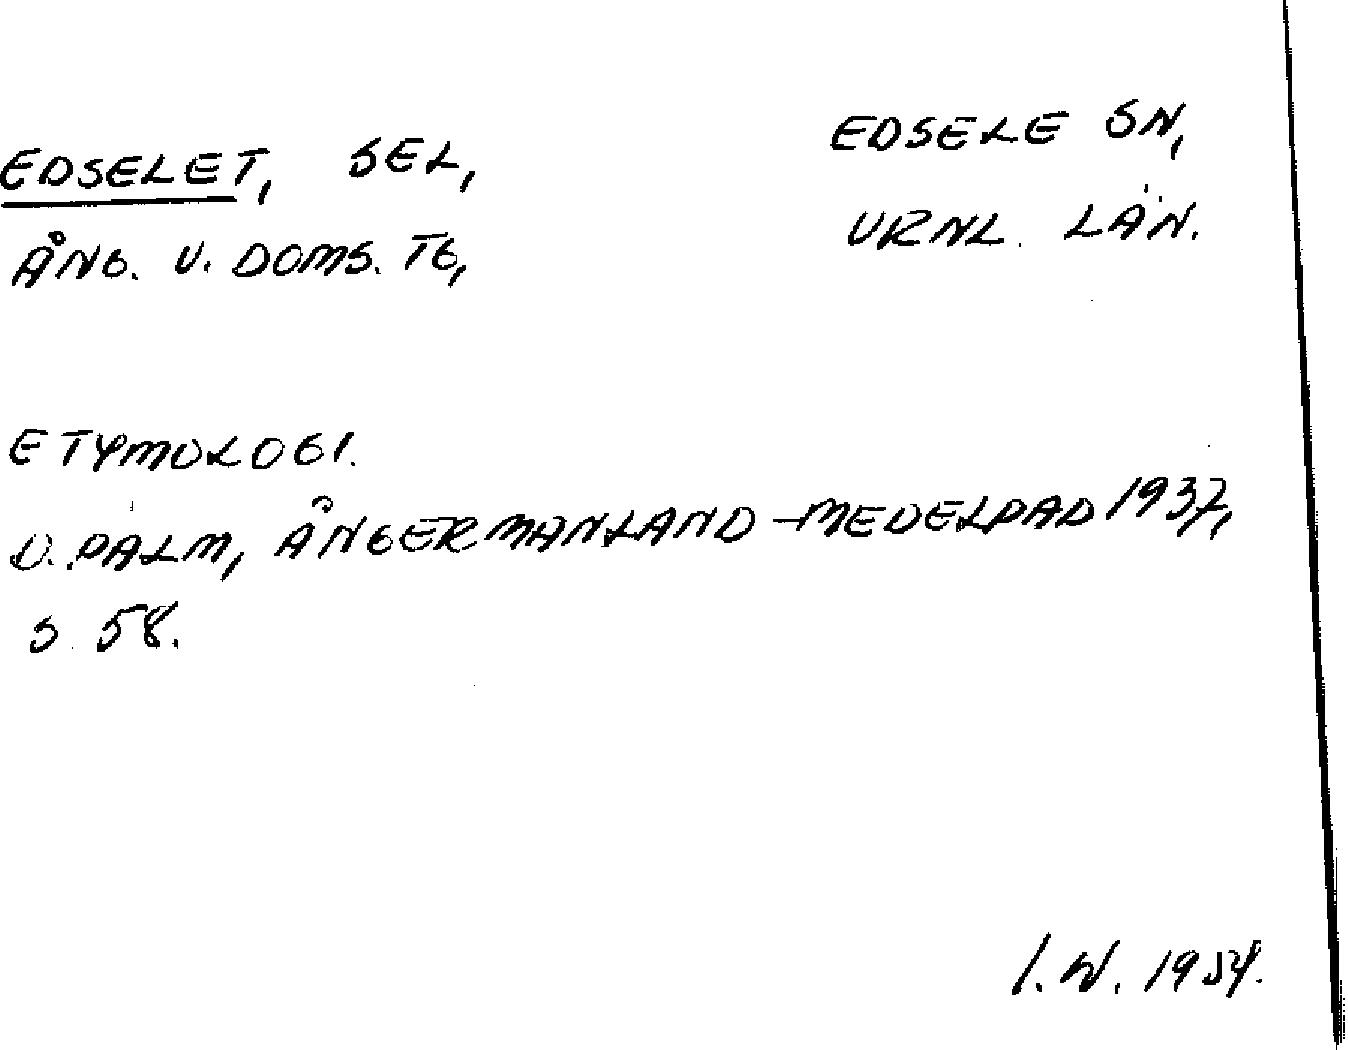 EDSELET, SEL,
EDSELE SN,
ÅNG. V. DOMS. TG,
VRNL. LÄN.
ETYMOLOGI.
D. PALM, ÅNGERMANLAND-MEDELPAD 1937,
S. 58.
I.W. 1954.